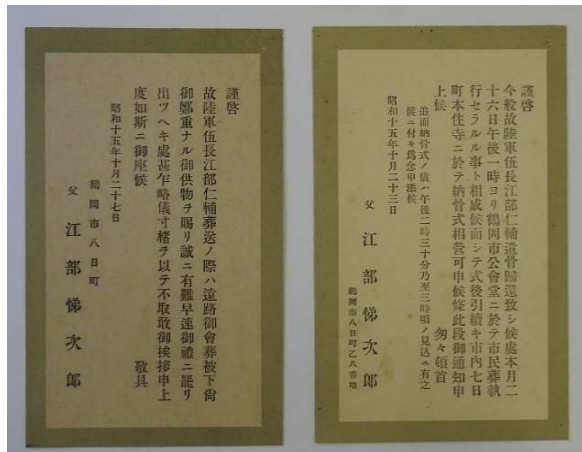 謹啓
今般故陸軍伍長江部仁補遺骨歸還致シ候處本月二
十六日午後一時ヨリ鶴岡市公會堂ニ於テ市民葬執
行セラルル事ト相成候而シテ式後引續キ市内七日
町本住寺ニ於テ納骨式相營可申候條此段御通知申
上候
匆々頓首
追而納骨式ノ儀ハ午後二時三十分乃至三時頃ノ見込ニ有之
候ニ付キ爲念申添候
昭和十五年十月二十三日
鶴岡市八日町乙八番地
父 江部悌次郎
謹啓
故陸軍伍長江部仁補葬送ノ際ハ遠路御會葬被下尙
御鄭重ナル御供物ヲ賜リ誠ニ有難早速御禮ニ罷リ
出ツヘキ處甚乍略儀寸楮ヲ以テ不取敢御挨拶申上
度如斯ニ御座候
敬具
昭和十五年十月二十七日
鶴岡市八日町
父 江部悌次郎